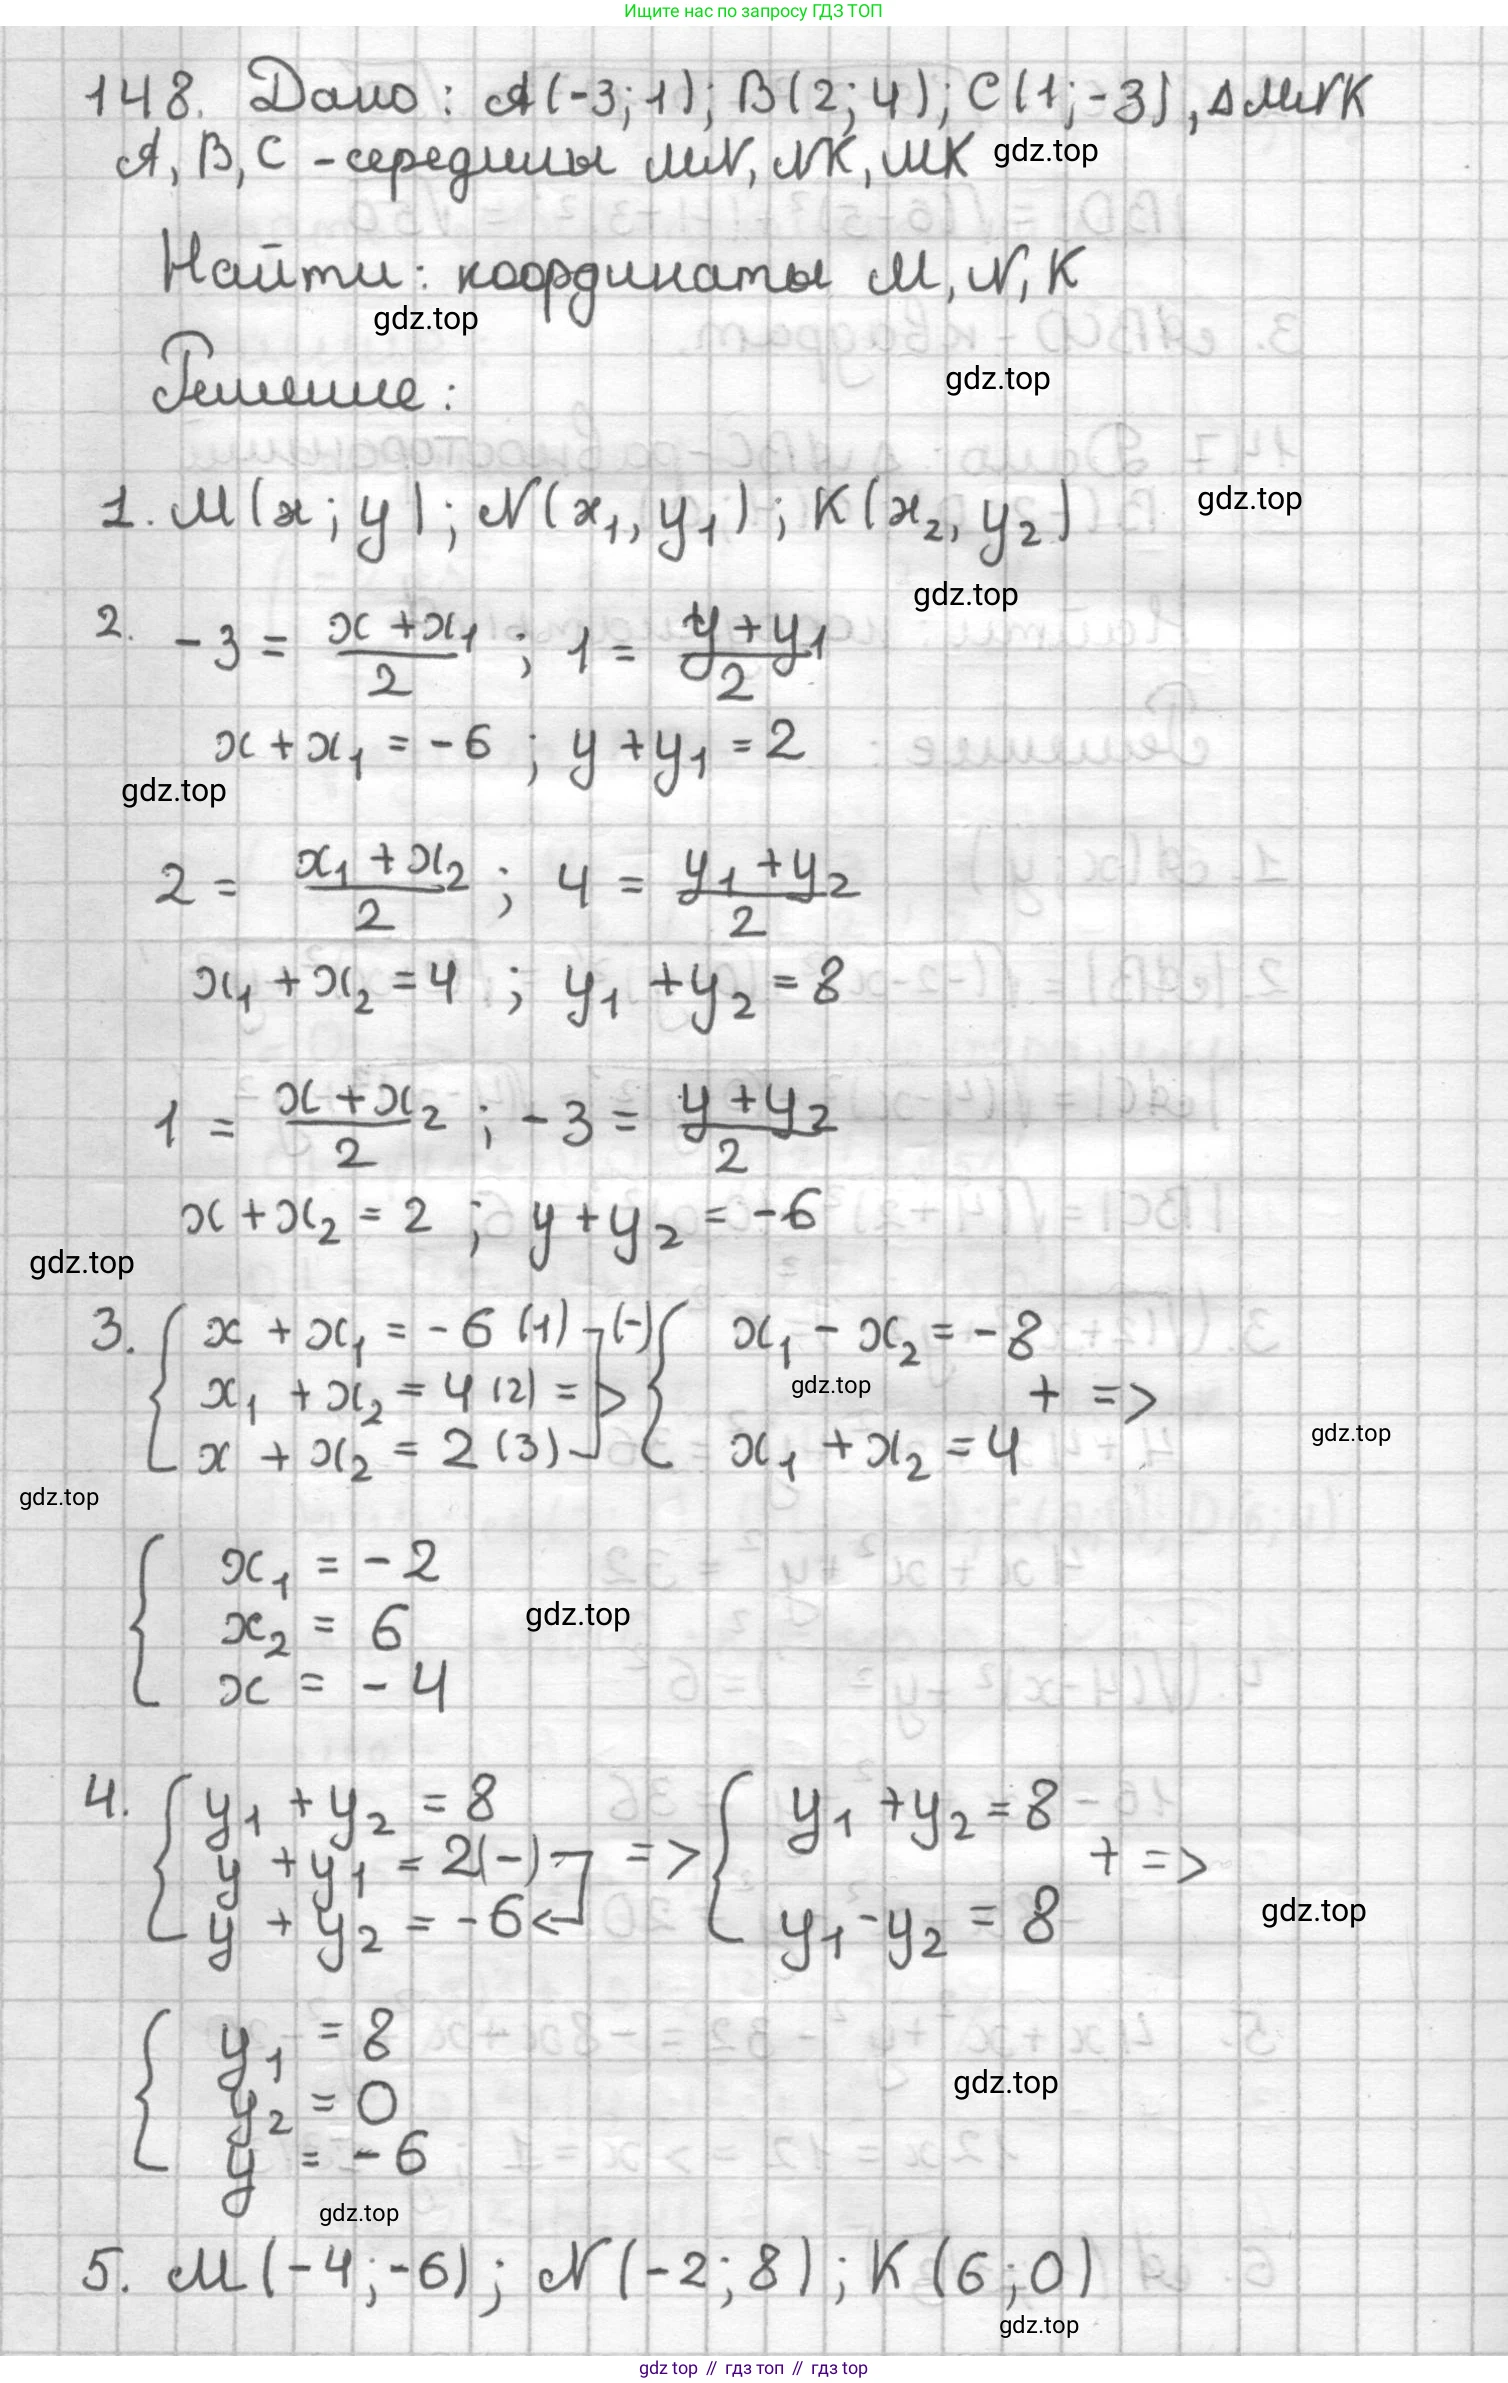 Ищите нас по запросу ГДЗ ТОП
148. Дано: A(-3;1); B(2;4); C(1;-3), ΔMNK
A, B, C - середины MN, NK, MK gdz.top
Найти: координаты M, N, K
gdz.top
Решение:
gdz.top
1. M(x; y); N(x₁, y₁); K(x₂, y₂)
gdz.top
gdz.top
2. -3 = (x + x₁)/2 ; 1 = (y + y₁)/2
x + x₁ = -6 ; y + y₁ = 2
gdz.top
2 = (x₁ + x₂)/2 ; 4 = (y₁ + y₂)/2
x₁ + x₂ = 4 ; y₁ + y₂ = 8
1 = (x + x₂)/2 ; -3 = (y + y₂)/2
x + x₂ = 2 ; y + y₂ = -6
gdz.top
3. { x + x₁ = -6 (1) (-) { x₁ - x₂ = -8
x₁ + x₂ = 4 (2) => + =>
x + x₂ = 2 (3) x₁ + x₂ = 4
gdz.top
gdz.top
gdz.top
{ x₁ = -2
x₂ = 6
x = -4
gdz.top
4. { y₁ + y₂ = 8 { y₁ + y₂ = 8
y + y₁ = 2 (-) => + =>
y + y₂ = -6 y₁ - y₂ = 8
gdz.top
{ y₁ = 8
y₂ = 0
y = -6
gdz.top
gdz.top
5. M(-4;-6); N(-2;8); K(6;0)
gdz.top
gdz top // гдз топ // гдз top